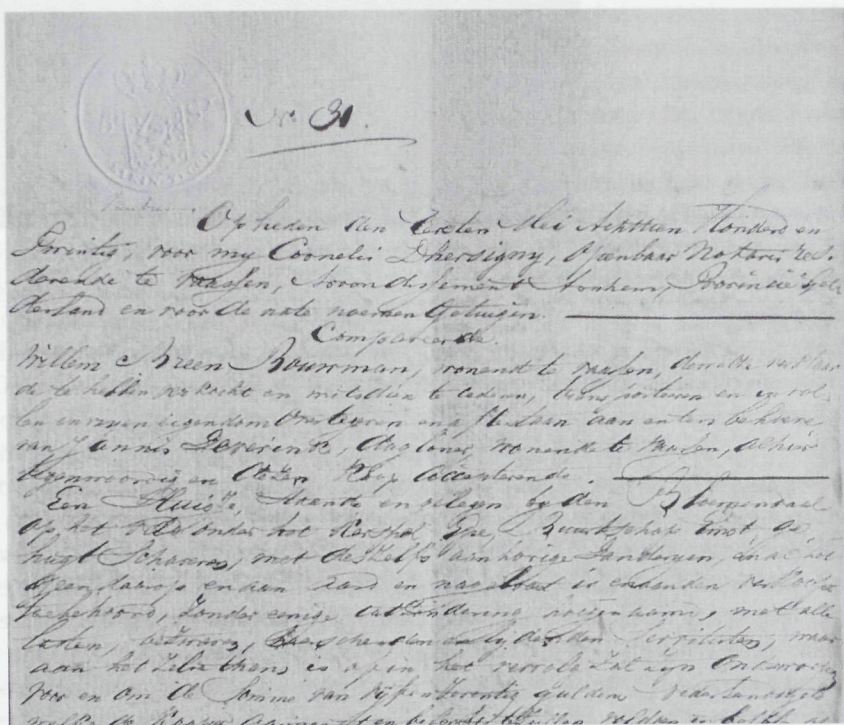 No. 31.
Op heden den Eersten Mei Achttien Honderd en
Twintig, voor my Cornelis Dhersigny, Openbaar Notaris resi-
derende te Vaassen, Arrondissement Arnhem, Provincie Gel-
derland en voor de nate noemen Getuigen.
Compareerde.
Willem Breen Bouwman, wonende te Vaassen, dewelke verklaar
de te hebben verkocht en mitsdien te cederen, transporteren en in vol-
len en vryen eigendom over te geven en af te staan aan en ten behoeve
van Jannis Leverink, dagloner, wonende te Vaassen, alhier
tegenwoordig en deze Koop accepterende.
Een Huis, staande en gelegen by den Bloemendaal
op het onder het Kerspel Epe, Buurtschap Emst ge-
hugt Schaveren, met de zelfs aanhorige Landeryen, en al het
geen daarop en aan aard en nagelvast is
toebehoord, zonder eenige uitzondering met alle
lasten, en lydende Servituten, waar
aan het zelve thans is of in het vervolg zal zyn onderworpen
voor en om de Somme van vyf en twentig guldens
welke de Kooper